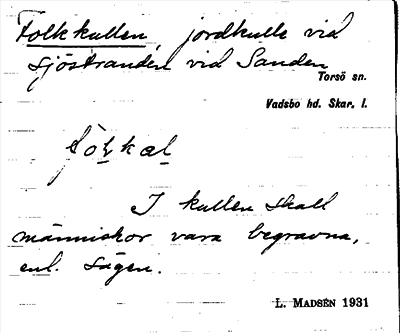 Folkkullen, jordkulle vid
sjöstranden vid Sanden
Torsö sn.
Vadsbo hd. Skar. l.
I kullen skall
människor vara begravna,
enl. sägen.
L. MADSÉN 1931